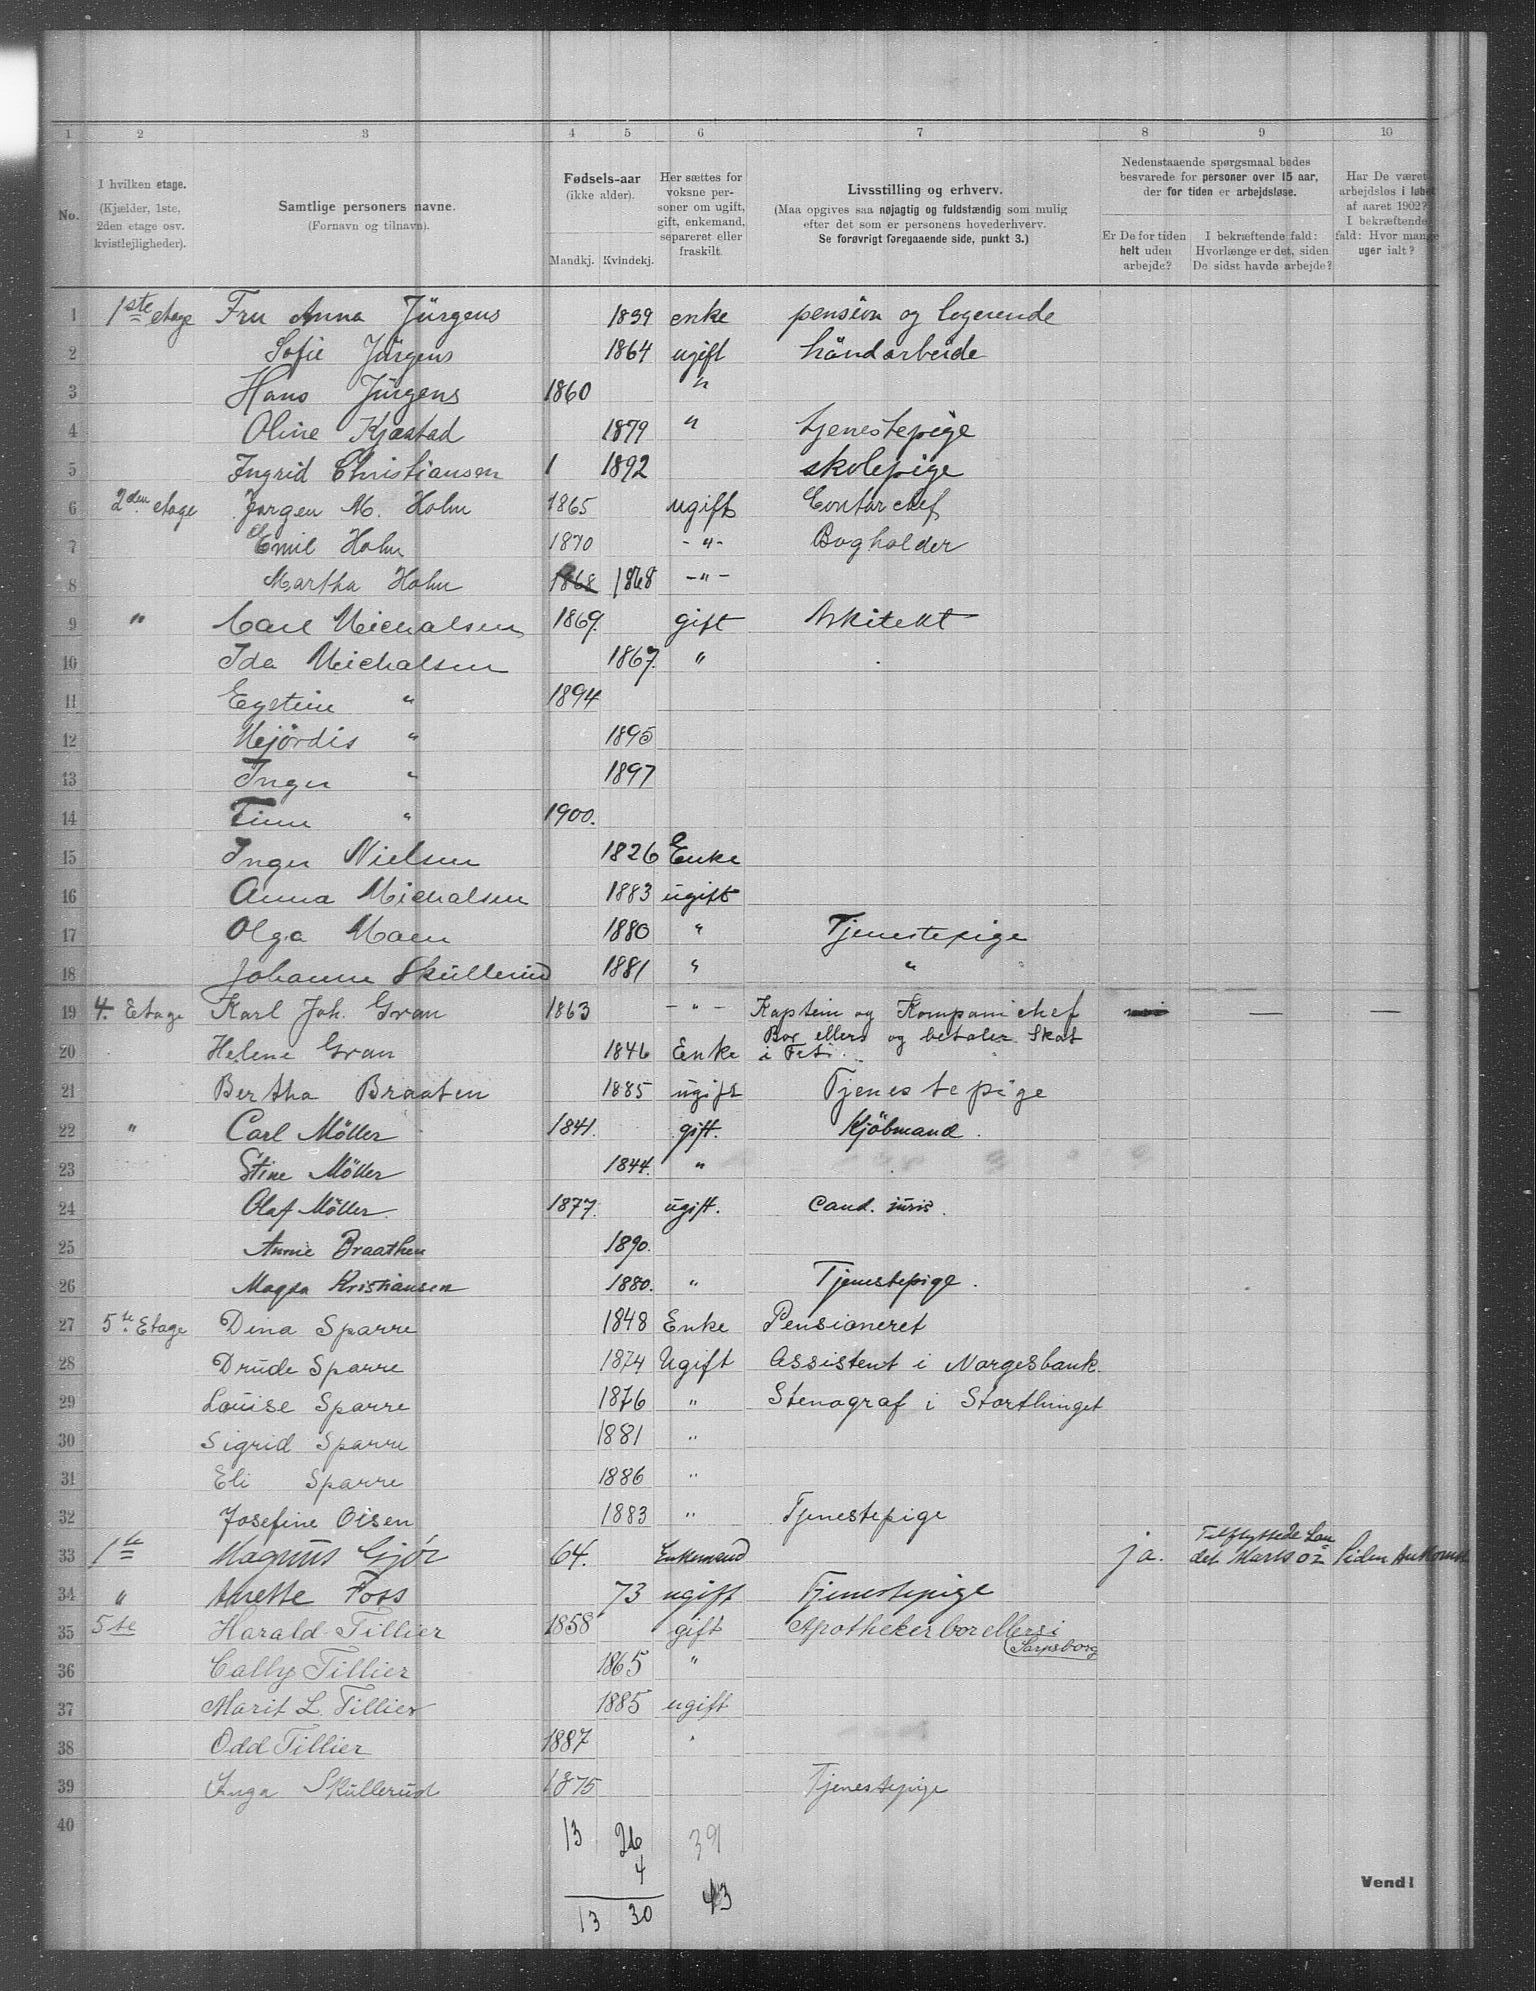 1 2 3 4 5 6 7 8 9 10
No.
I hvilken etage.
(Kjælder, 1ste,
2den etage osv.
kvistlejligheder).
Samtlige personers navne.
(Fornavn og tilnavn).
Fødsels-aar
(ikke alder).
Mandkj. Kvindekj.
Her sættes for
voksne per-
soner om ugift,
gift, enkemand,
separeret eller
fraskilt.
Livsstilling og erhverv.
(Maa opgives saa nøjagtig og fuldstændig som mulig
efter det som er personens hovederhverv.
Se forøvrigt foregaaende side, punkt 3.)
Nedenstaaende spørgsmaal bedes
besvarede for personer over 15 aar,
der for tiden er arbejdsløse.
Er De for tiden
helt uden
arbejde?
I bekræftende fald:
Hvorlænge er det, siden
De sidst havde arbejde?
Har De været
arbejdsløs i løbet
af aaret 1902?
I bekræftende
fald: Hvor mange
uger ialt?
1 1ste etage Fru Anna Jürgens 1839 enke pension og logerende
2 Sofie Jürgens 1864 ugift håndarbeide
3 Hans Jürgens 1860 "
4 Oline Kjæstad 1879 " tjenestepige
5 Ingrid Christiansen 1 1892 skolepige
6 2den etage Jørgen M. Holm 1865 ugift Contorchef
7 Emil Holm 1870 -"- Bogholder
8 Martha Holm 1868 1868 -"-
9 " Carl Michalsen 1869. gift Arkitekt
10 Ida Michalsen 1867. "
11 Eystein " 1894
12 Hjördis " 1895
13 Inger " 1897
14 Finn " 1900.
15 Inger Nielsen 1826 Enke
16 Anna Michalsen 1883 ugift
17 Olga Moen 1880 " Tjenestepige
18 Johanne Skullerud 1881 " "
19 4. Etage Karl Joh. Gran 1863 -"- Kaptein og Kompanichef — —
Bor ellers og betaler Skat
20 Helene Gran 1846 Enke i Fet.
21 Bertha Braaten 1885 ugift Tjenestepige
22 " Carl Möller 1841. gift. Kjöbmand.
23 Stine Möller 1844. "
24 Olaf Möller. 1877. ugift. Cand. juris.
25 Annie Braathen 1890.
26 Magda Kristiansen 1880. " Tjenestepige.
27 5te Etage Dina Sparre 1848 Enke Pensioneret
28 Drude Sparre 1874 Ugift Assistent i Norgesbank.
29 Louise Sparre 1876 " Stenograf i Storthinget
30 Sigrid Sparre 1881 "
31 Eli Sparre 1886 "
32 Josefine Olsen 1883 " Tjenestepige
Tilflyttede Lan
33 1te Magnus Gjör 64. Enkemand ja. det Marts 02 Siden Ankomst
34 " Anette Foss 73 ugift Tjenestepige
35 5te Harald Tillier 1858 gift Apotheker bor ellers i
Sarpsborg
36 Cally Tillier 1865 "
37 Marit L. Tillier 1885 ugift
38 Odd Tillier 1887 "
39 Inga Skullerud 1875 Tjenestepige
40
13 26 39
4
13 30 43
Vend!